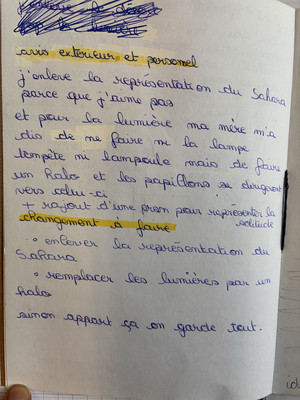 avis extérieur et personnel
j'enlève la représentation du Sahara
parce que j'aime pas
et pour la lumière ma mère m'a
dis de ne faire ni la lampe
tempête ni lampoule mais de faire
un halo et les papillons se dirigeant
vers celui-ci
+ rajout d'une pers pour représenter la
solitude
changement à faire
° enlever la représentation du
Sahara
° remplacer les lumières par un
halo
sinon appart ça on garde tout.